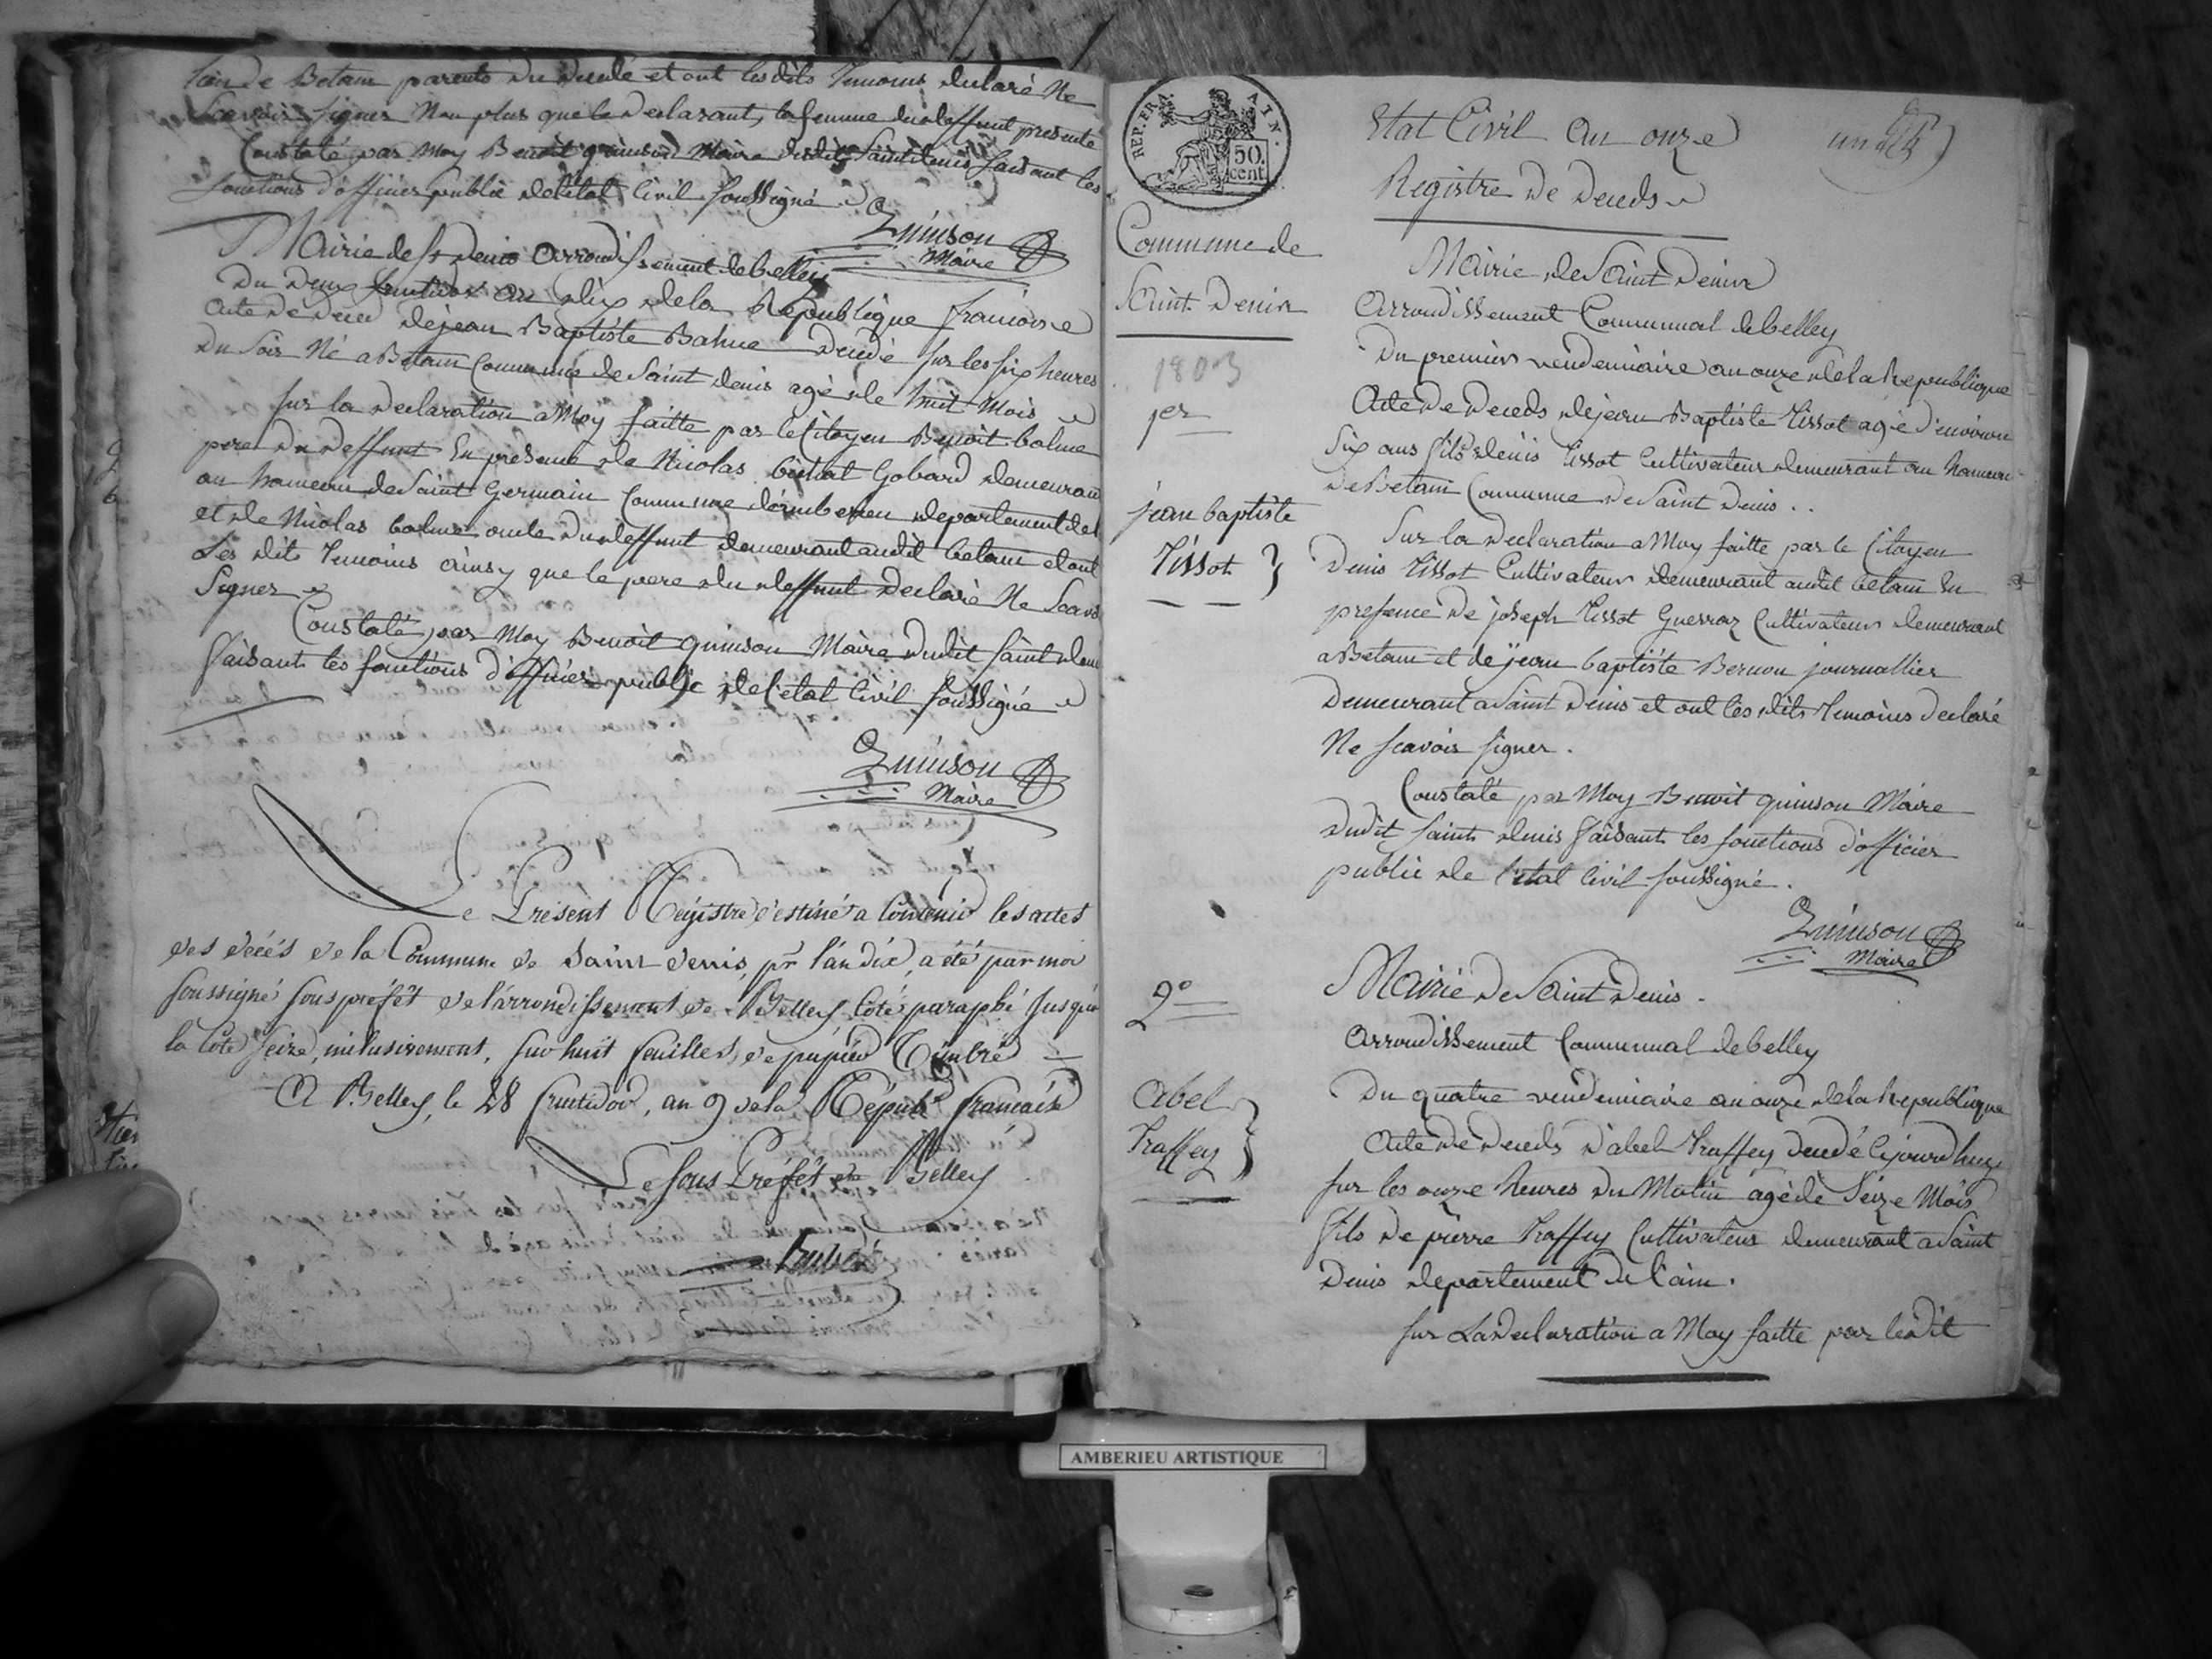 de Betam parents du decedé et ont lesdits Temoins declaré Ne
Scavoir signer Non plus que le Declarant, la femme du deffunt presente
Constaté par Moy Benoit quinson Maire dudit Saint denis faisant les
fonctions d'officier public de l'état Civil soussigné
Quinson
Maire
Mairie de St Denis Arrondissement de belley
Du Deux fructidor an dix de la Republique francoise
Acte de deces de jean Baptiste Balme Decedé sur les six heures
du soir Né a Betam Commune de Saint denis agé de huit Mois
sur la Declaration a Moy faitte par le Citoyen Benoit balme
pere du deffunt En presence de Nicolas Gobard demeurant
au hameau de Saint Germain Commune d'amberieu departement de l
et de Nicolas balme oncle du deffunt demeurant audit betam et ont
Les dits Temoins ainsy que le pere du deffunt Declaré Ne Scavo
Signer
Constaté par Moy Benoit quinson Maire dudit saint deni
faisant les fonctions d'officier public de l'etat Civil soussigné
Quinson
Maire
Le Présent Régistre destiné a Contenir les actes
des décès de la Commune de Saint denis, pr l'an dix, a été par moi
soussigné sous préfêt de l'arrondissement de Belley coté paraphé jusqu'a
la Cote seize, inclusivement, sur huit feuilles de papier Timbré
A Belley, le 28 fructidor, an 9 de la Républ. française
Le sous Préfêt de Belley
REP. FRA.
50.
cent.
Etat Civil an onze
Registre de Deceds
Commune de
Saint Denis
1803
Mairie de Saint Denis
Arrondissement Communal de belley
Du premier vendemiaire an onze de la Republique
1er
Acte de Deceds de jean Baptiste Tissot agé d'environ
six ans fils denis Tissot Cultivateur demeurant au hameau
de Betam Commune de Saint Denis . .
jean baptiste
Tissot
Sur la Declaration a Moy faitte par le Citoyen
Denis Tissot Cultivateur demeurant audit betam En
presence de joseph Tissot Guerraz Cultivateur demeurant
a Betam et de jean baptiste Bernou journallier
Demeurant a Saint Denis et ont les dits Temoins declaré
Ne scavoir signer .
Constaté par Moy Benoit quinson Maire
dudit saint denis faisant les fonctions d'officier
public de l'etat Civil soussigné .
Quinson
Maire
2o
Mairie de Saint Denis .
Arrondissement Communal de belley
Du quatre vendemiaire an onze de la Republique
Abel
Traffey
Acte de Deceds d'abel Traffey decedé Cejourdhuy
sur les onze heures du Matin agé de Seize Mois
fils de pierre Traffey Cultivateur demeurant a Saint
Denis departement de l'ain .
sur La Declaration a Moy faitte par ledit
AMBERIEU ARTISTIQUE